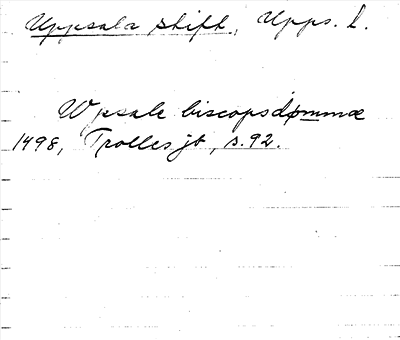 Uppsala stift, Upps. l.
Wpsale biscopsdømmæ
1498, Trolles jb, s. 92.